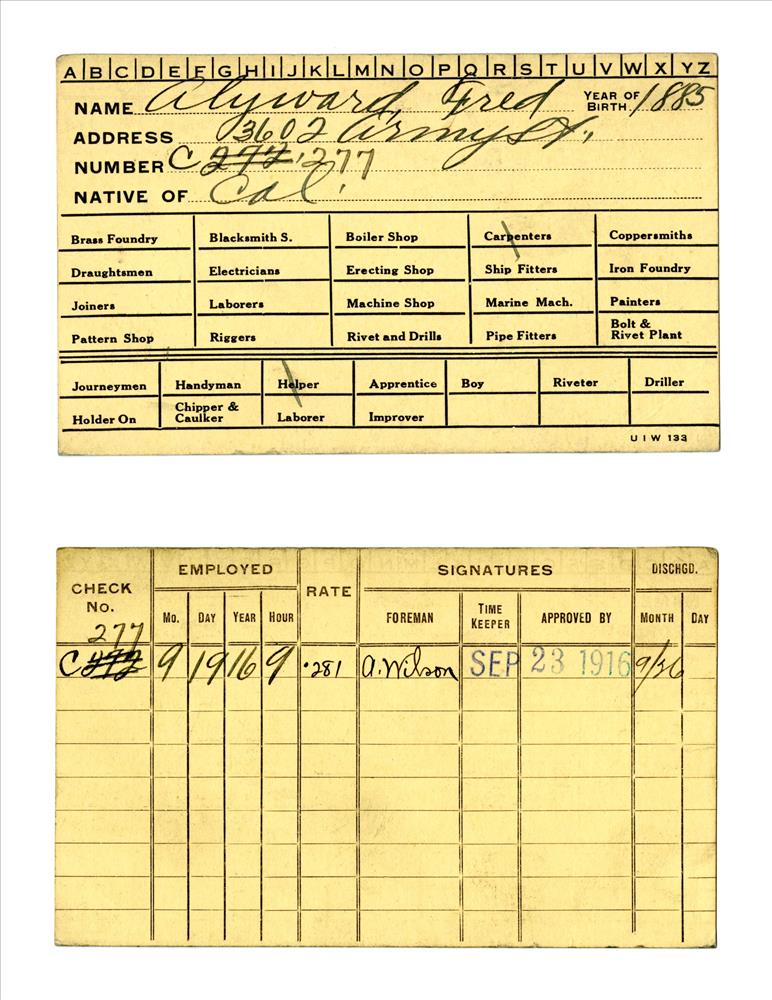 A B C D E F G H I J K L M N O P Q R S T U V W X Y Z
NAME Alyward, Fred YEAR OF BIRTH 1885
ADDRESS 3602 Army St.,
NUMBER C 272, 277
NATIVE OF Cal.
Brass Foundry Blacksmith S. Boiler Shop Carpenters Coppersmiths
Draughtsmen Electricians Erecting Shop Ship Fitters Iron Foundry
Joiners Laborers Machine Shop Marine Mach. Painters
Pattern Shop Riggers Rivet and Drills Pipe Fitters Bolt & Rivet Plant
Journeymen Handyman Helper Apprentice Boy Riveter Driller
Holder On Chipper & Caulker Laborer Improver
U I W 133
CHECK No. EMPLOYED RATE SIGNATURES DISCHGD.
Mo. DAY YEAR HOUR FOREMAN TIME KEEPER APPROVED BY MONTH DAY
277
C 272 9 19 16 9 .281 A. Wilson SEP 23 1916 9/26